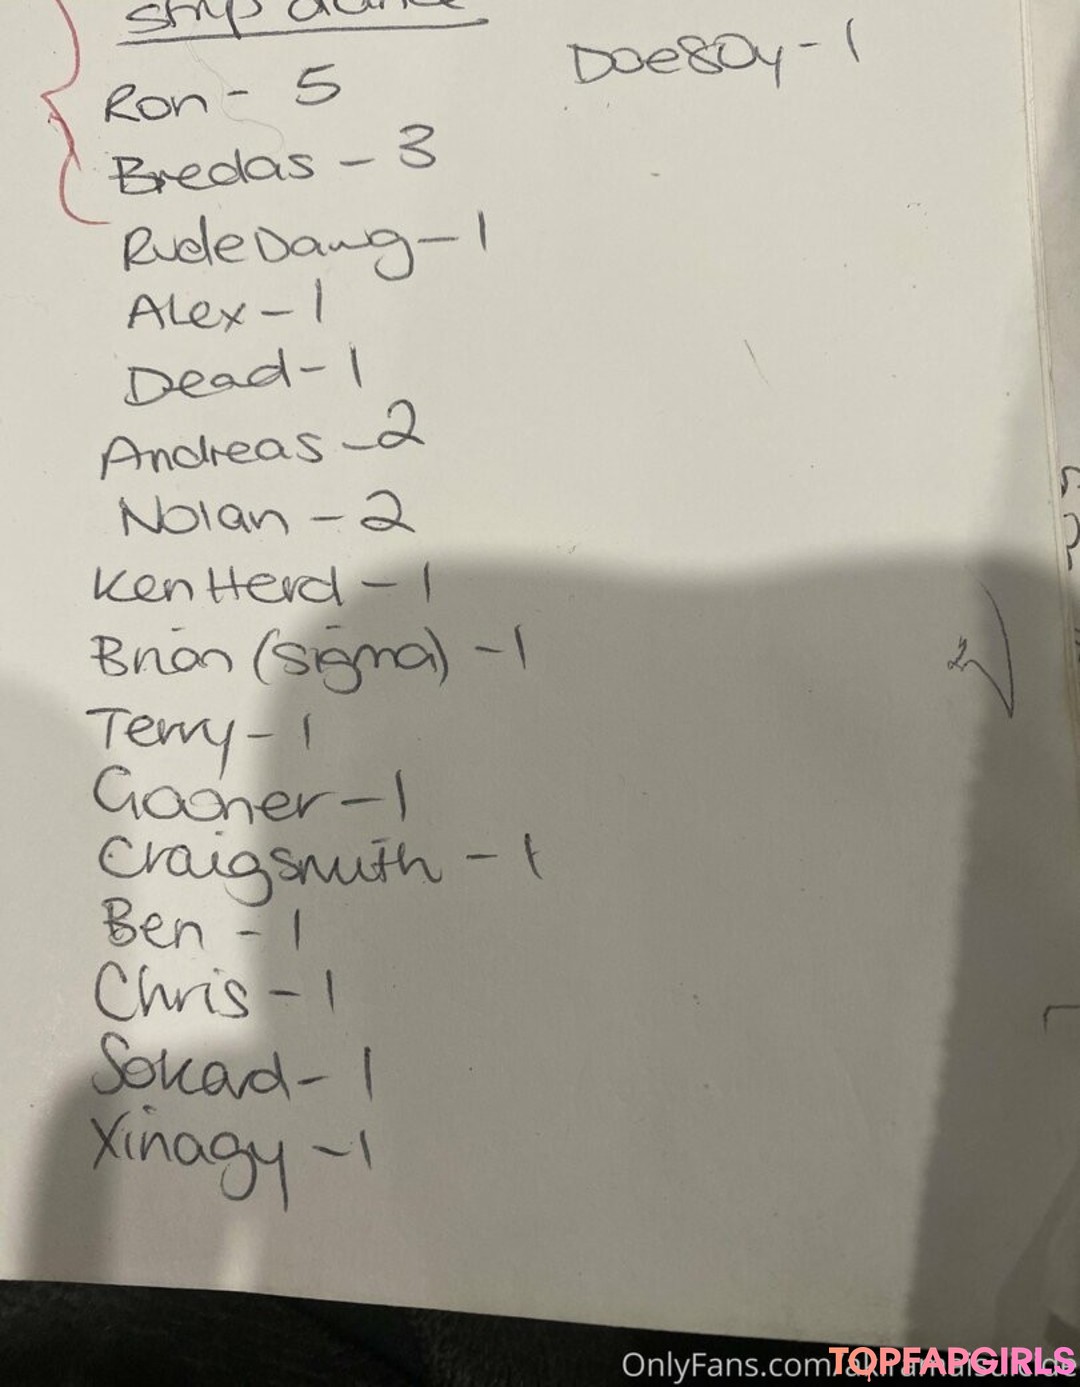 strip dance
Ron - 5
Doe80y - 1
Bredas - 3
RudeDawg - 1
Alex - 1
Dead - 1
Andreas - 2
Nolan - 2
Ken Herd - 1
Brian (sigma) - 1
Terry - 1
Craigsmith - 1
Ben - 1
Chris - 1
Sokad - 1
Xinagy - 1
OnlyFans.com/
TOPFAPGIRLS